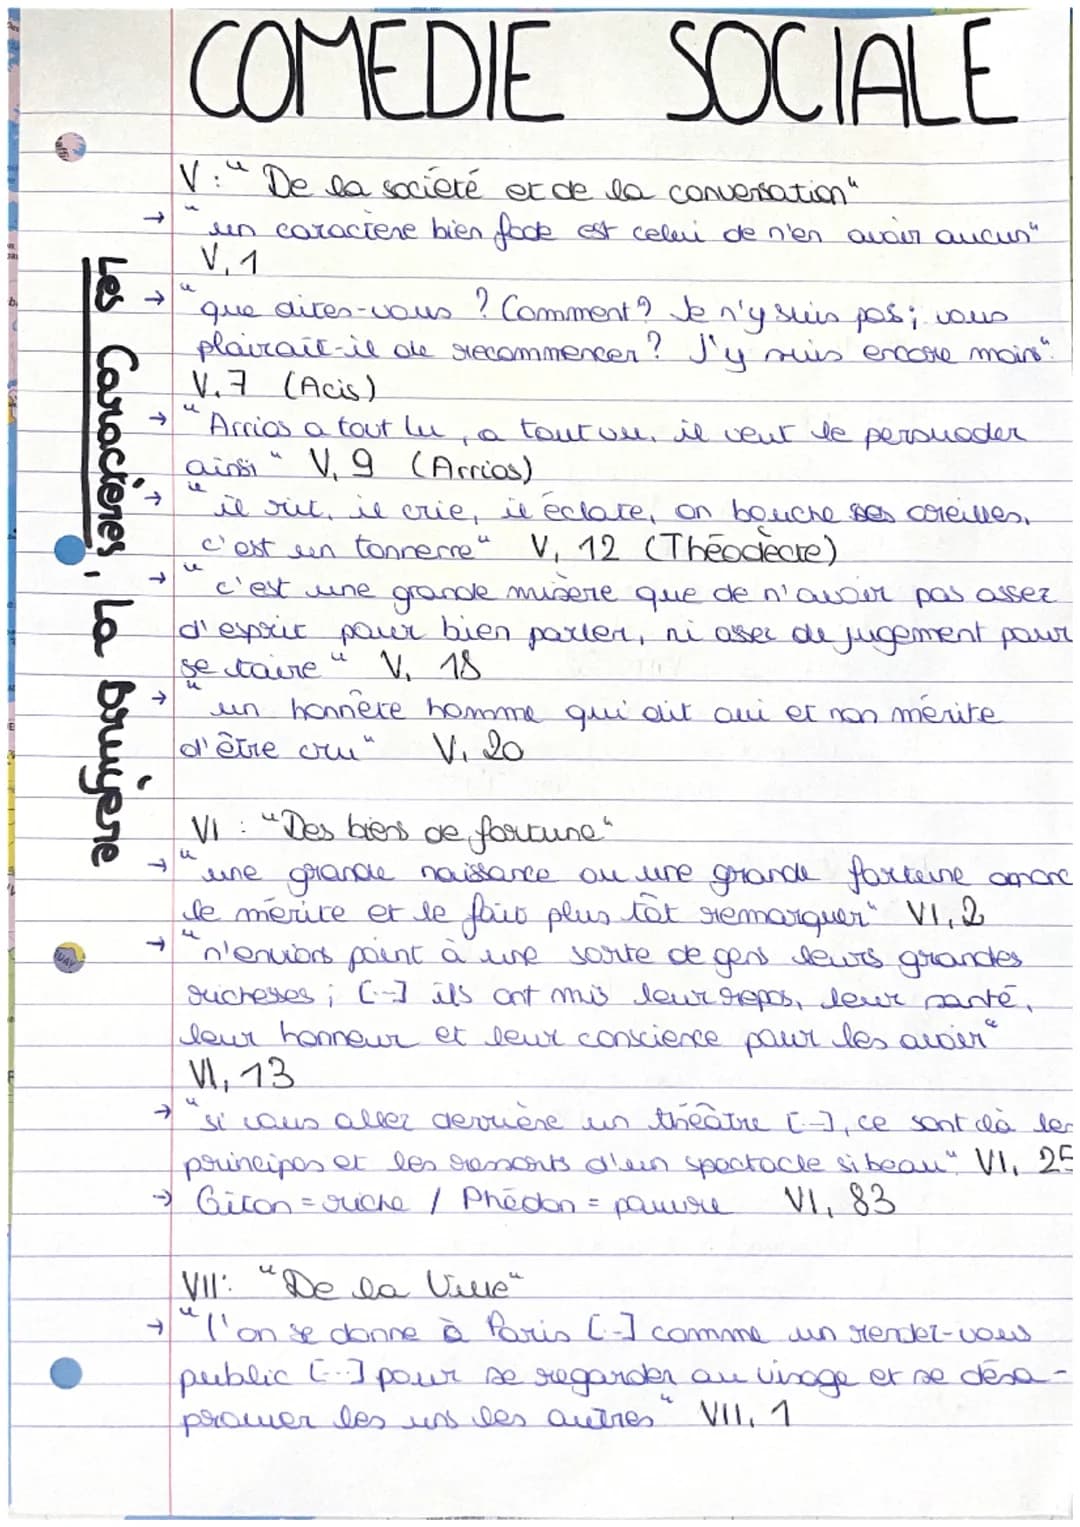 COMEDIE SOCIALE
Les Caractères, La Bruyère
V : "De la société et de la conversation"
→ "un caractère bien fade est celui de n'en avoir aucun"
V, 1
→ "que dites-vous ? Comment ? Je n'y suis pas ; vous
plairait-il de recommencer ? J'y suis encore moins".
V. 7 (Acis)
→ "Arrias a tout lu, a tout vu, il veut le persuader
ainsi" V, 9 (Arrias)
→ "il rit, il crie, il éclate, on bouche ses oreilles,
c'est un tonnerre" V, 12 (Théodècte)
→ "c'est une grande misère que de n'avoir pas assez
d'esprit pour bien parler, ni assez de jugement pour
se taire" V, 18
→ "un honnête homme qui dit oui et non mérite
d'être cru" V, 20
VI : "Des biens de fortune"
→ "une grande naissance ou une grande fortune annonc
le mérite et le fait plus tôt remarquer" VI, 2
→ "n'envions point à une sorte de gens leurs grandes
richesses ; [...] ils ont mis leur repos, leur santé,
leur honneur et leur conscience pour les avoir"
VI, 13
→ "si vous allez derrière un théâtre [...], ce sont là les
principes et les ressorts d'un spectacle si beau" VI, 25
→ Giton = riche / Phédon = pauvre VI, 83
VII : "De la Ville"
→ "l'on se donne à Paris [...] comme un rendez-vous
public [...] pour se regarder au visage et se désa-
prouver les uns les autres" VII, 1